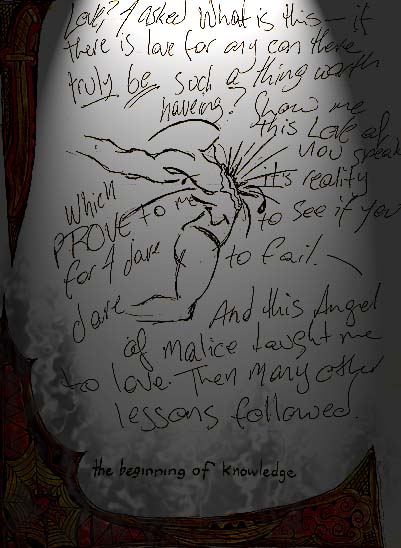 Love? I asked What is this — if
there is love for any can there
truly be such a thing worth
having? Show me
this Love of
which you speak
PROVE to me its reality
for I dare to see if you
dare to fail. —
And this Angel
of malice taught me
to love. Then Many other
lessons followed.
the beginning of knowledge